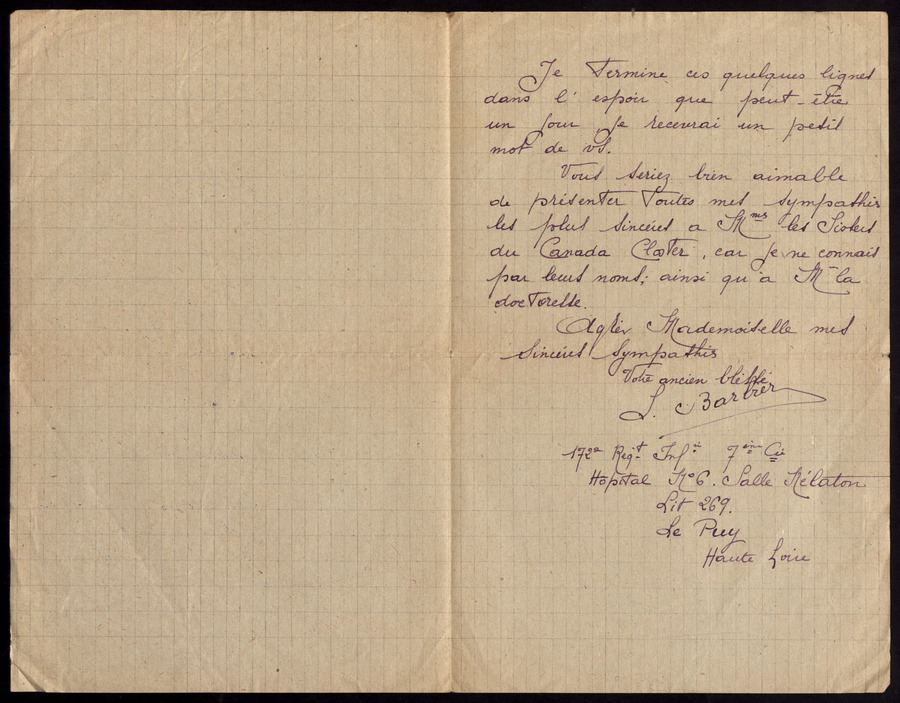 Je Termine ces quelques lignes
dans l'espoir que peut-être
un jour je recevrai un petit
mot de vs.
Vous seriez bien aimable
de présenter Toutes mes sympathies
les plus sincères a Mmes les Sisters
du Canada Closter, car je ne connait
par leurs noms; ainsi qu'a Me la
docToresse.
Agréer Mademoiselle mes
sincères sympathies
Votre ancien blessé
L. Barbier
172e Regt Infie 7ème Cie
Hôpital No 6. Salle Nélaton
Lit 269.
Le Puy
Haute Loire